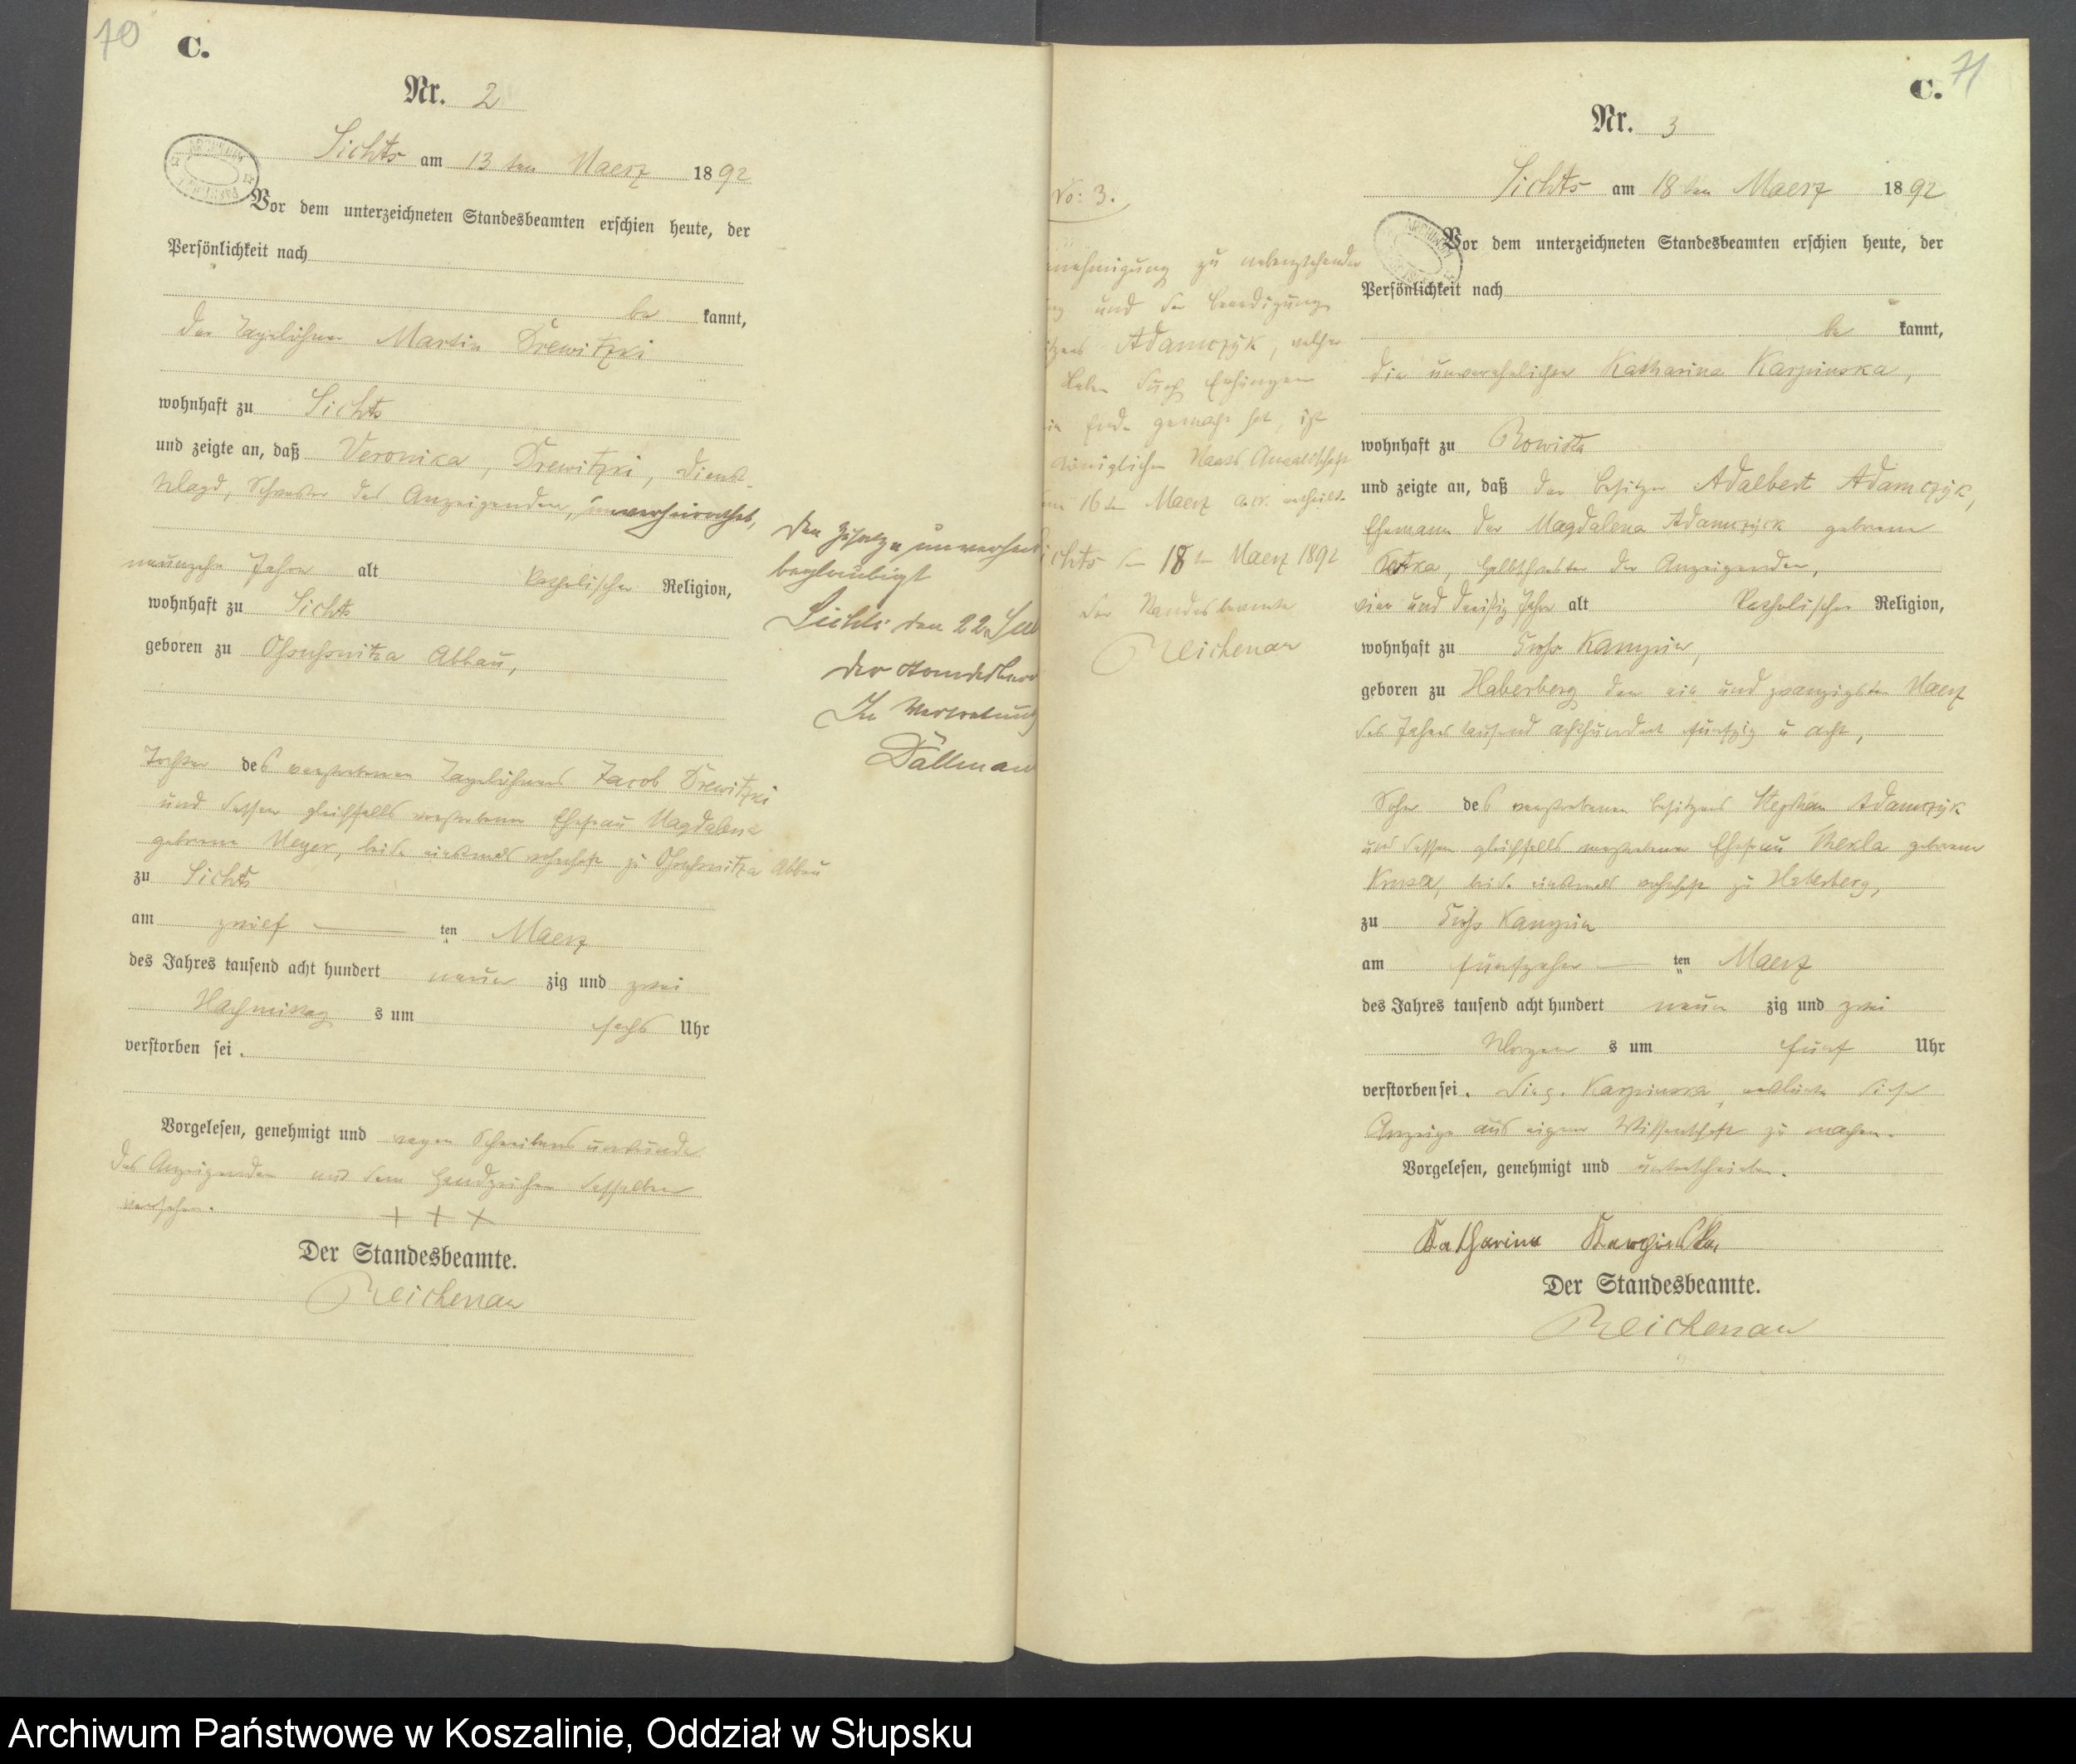 70
C.
Nr. 2
Sichts am 13 ten Maerz 1892
Vor dem unterzeichneten Standesbeamten erschien heute, der
Persönlichkeit nach
be kannt,
der Tagelöhner Martin Drewitzki
wohnhaft zu Sichts
und zeigte an, daß Veronika, Drewitzki, Dienst-
Magd, Schwester des Anzeigenden, unverheirathet,
neunzehn Jahre alt katholischer Religion,
wohnhaft zu Sichts
geboren zu Ossussnitza Abbau,
Tochter des verstorbenen Tagelöhners Jacob Drewitzki
und dessen gleichfalls verstorbenen Ehefrau Magdalena
geborene Meyer, beide einstmals wohnhaft zu Ossussnitza Abbau
zu Sichts
am zwölf ten Maerz
des Jahres tausend acht hundert neun zig und zwei
Nachmittag s um sechs Uhr
verstorben sei.
Vorgelesen, genehmigt und wegen Schreibensunkunde
des Anzeigenden mit dem Handzeichen desselben
versehen. + + +
Der Standesbeamte.
Reichenau
Den Zusatz unverheir
beglaubigt
Sichts den 22.
Der Standesbeam
In Vertretung
Dällman
71
C.
Nr. 3
Sichts am 18 ten Maerz 1892
No: 3.
nehmigung zu nebenstehender
und der Beerdigung
Adamczyk, welcher
Leben durch Erhängen
ein Ende gemacht hat, ist
Königlichen Staats Anwaltschaft
16 ten Maerz a. cr. ertheilt.
ichts den 18 ten Maerz 1892
Der Standesbeamte
Reichenau
Vor dem unterzeichneten Standesbeamten erschien heute, der
Persönlichkeit nach
be kannt,
die unverehelichte Katharina Karpinska,
wohnhaft zu Rowista
und zeigte an, daß der Besitzer Adalbert Adamczyk,
Ehemann der Magdalena Adamczyck geborene
Kotka, Halbschwester der Anzeigenden,
vier und dreißig Jahre alt katholischer Religion,
wohnhaft zu Groß Kampin,
geboren zu Haberberg den ein und zwanzigsten Maerz
des Jahres tausend achthundert fünfzig u acht,
Sohn des verstorbenen Besitzers Stephan Adamczyk
und dessen gleichfalls verstorbenen Ehefrau Thekla geborene
beide einstmals wohnhaft zu Haberberg,
zu Groß Kampin
am fünfzehn ten Maerz
des Jahres tausend acht hundert neun zig und zwei
Morgen s um fünf Uhr
verstorben sei. Die p. Karpinska, erklärte diese
Anzeige aus eigener Wissenschaft zu machen.
Vorgelesen, genehmigt und unterschrieben.
Katharina Karpinska
Der Standesbeamte.
Reichenau
Archiwum Państwowe w Koszalinie, Oddział w Słupsku